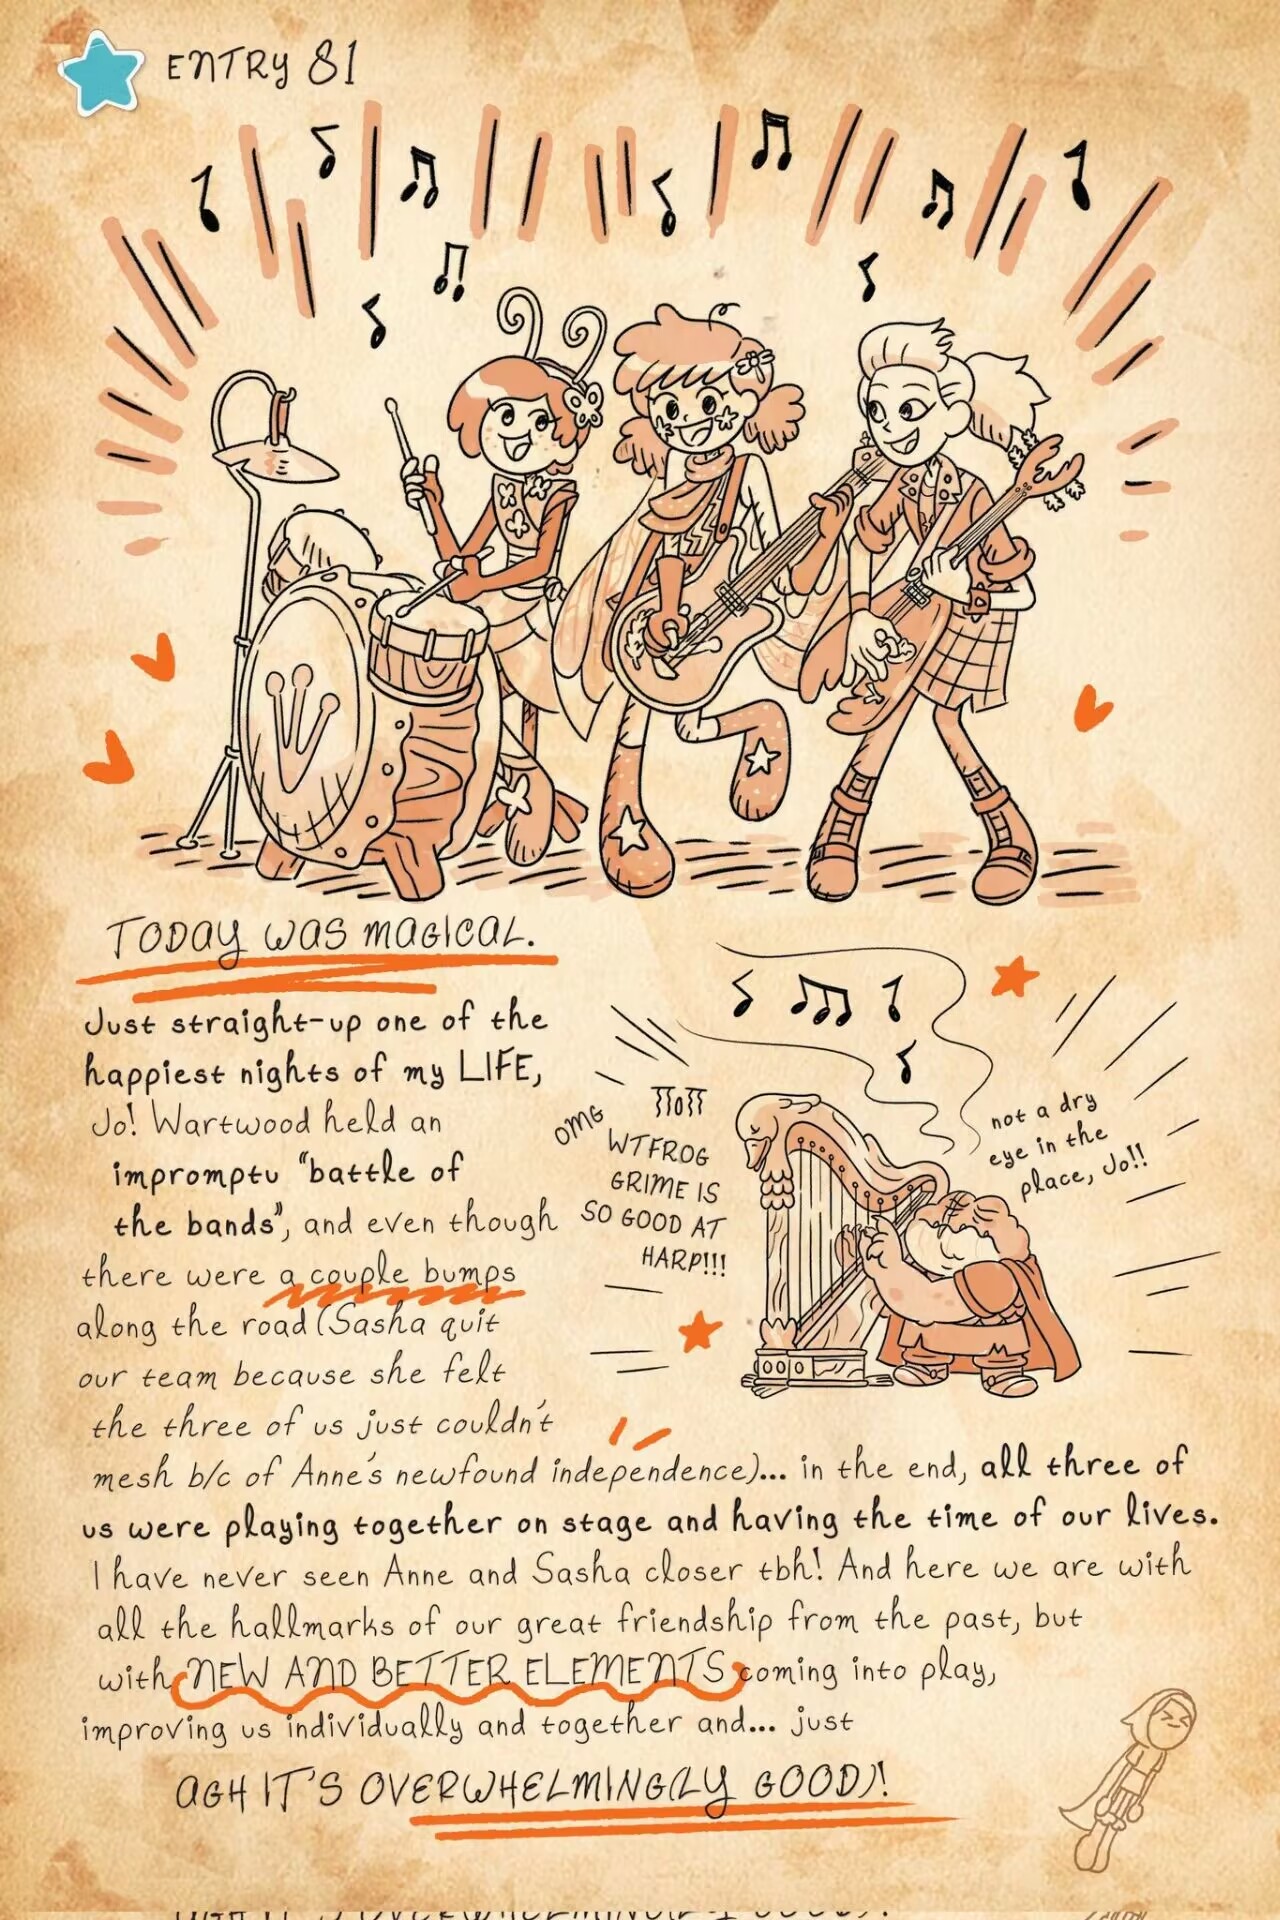 ENTRY 81
TODAY WAS MAGICAL.
Just straight-up one of the
happiest nights of my LIFE,
Jo! Wartwood held an
impromptu "battle of
the bands", and even though
there were a couple bumps
along the road (Sasha quit
our team because she felt
the three of us just couldn't
mesh b/c of Anne's newfound independence)... in the end, all three of
us were playing together on stage and having the time of our lives.
I have never seen Anne and Sasha closer tbh! And here we are with
all the hallmarks of our great friendship from the past, but
with NEW AND BETTER ELEMENTS coming into play,
improving us individually and together and... just
AGH IT'S OVERWHELMINGLY GOOD)!
OMG
WTFROG
GRIME IS
SO GOOD AT
HARP!!!
not a dry
eye in the
place, Jo!!